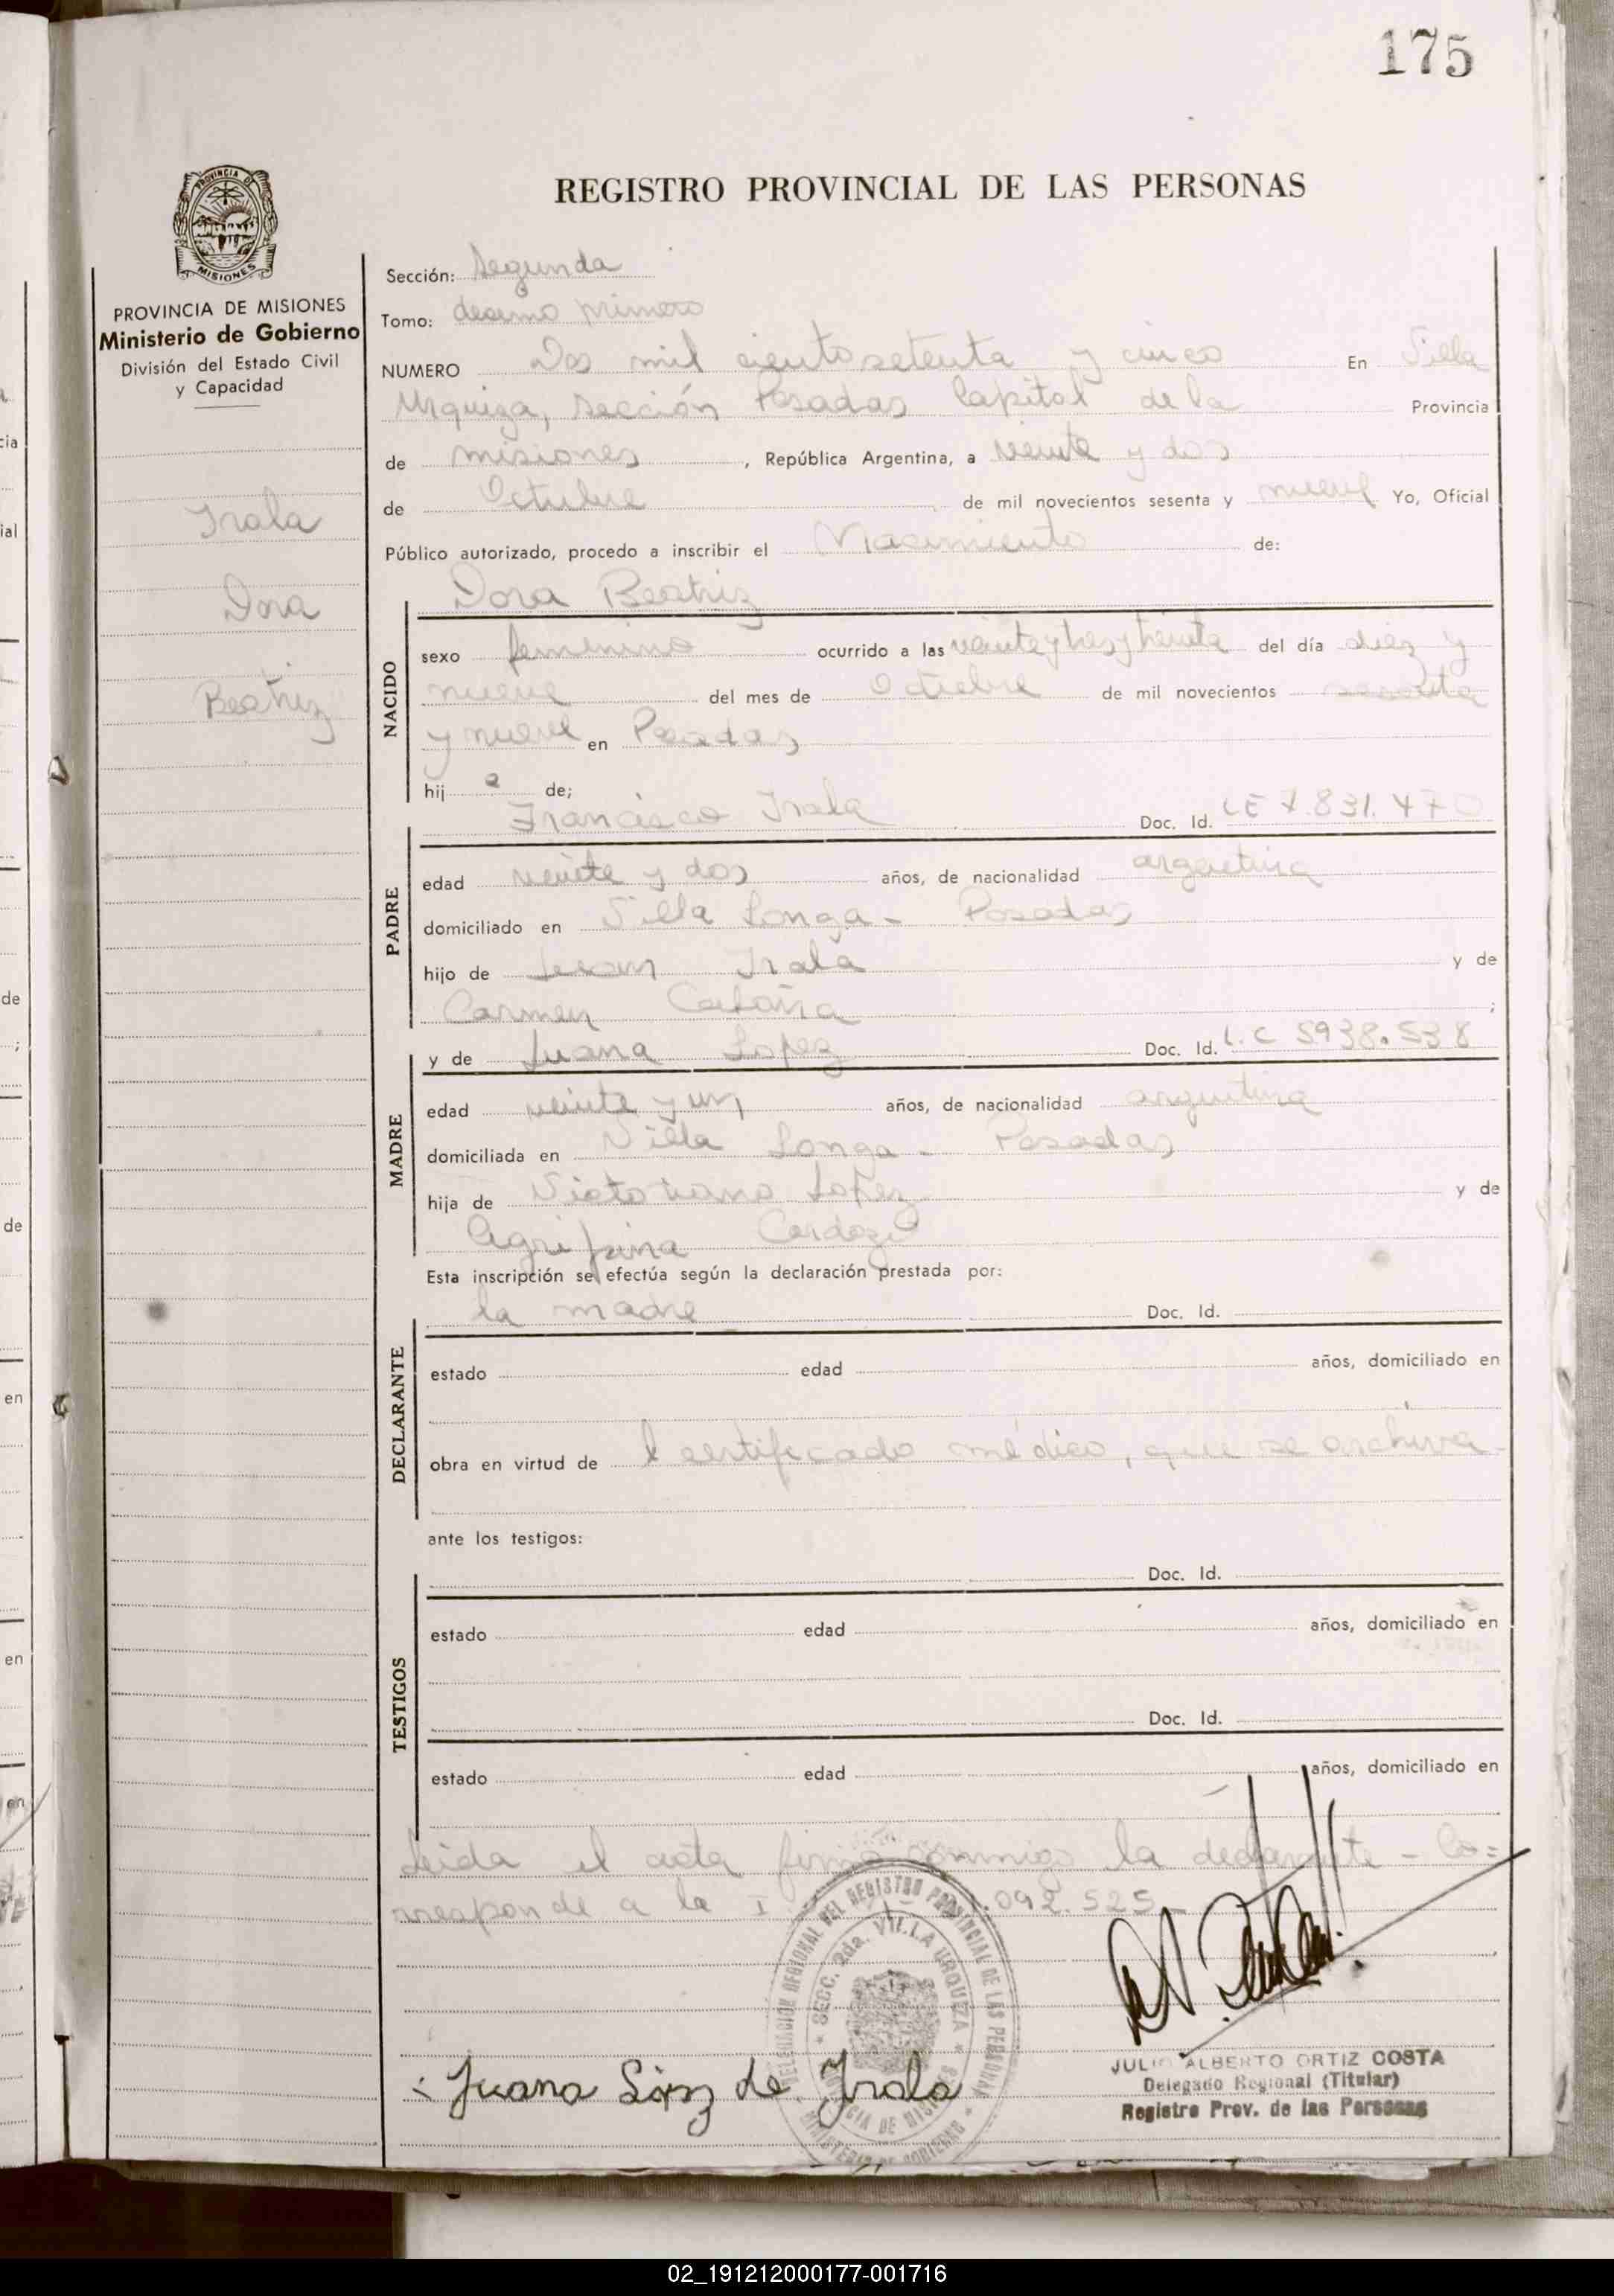 175
PROVINCIA DE
MISIONES
PROVINCIA DE MISIONES
Ministerio de Gobierno
División del Estado Civil
y Capacidad
Irala
Dora
Beatriz
REGISTRO PROVINCIAL DE LAS PERSONAS
Sección: Segunda
Tomo: decimo primero
NUMERO Dos mil ciento setenta y cinco En Villa
Urquiza, Sección Posadas Capital de la Provincia
de misiones, República Argentina, a veinte y dos
de Octubre de mil novecientos sesenta y nueve Yo, Oficial
Público autorizado, procedo a inscribir el Nacimiento de:
Dora Beatriz
NACIDO
sexo femenino ocurrido a las veinte y tres y treinta del día diez y
nueve del mes de Octubre de mil novecientos sesenta
y nueve en Posadas
hij a de;
Francisco Irala Doc. Id. LE 7.831.470
PADRE
edad veinte y dos años, de nacionalidad argentina
domiciliado en Villa Longa - Posadas
hijo de Juan Irala y de
Carmen ;
y de Juana Lopez Doc. Id. L.C 5938.538
MADRE
edad veinte y un años, de nacionalidad argentina
domiciliada en Villa Longa - Posadas
hija de Victoriano Lopez y de
Agripina Cardozo
Esta inscripción se efectúa según la declaración prestada por:
la madre Doc. Id.
DECLARANTE
estado edad años, domiciliado en
obra en virtud de l certificado médico, que se archiva-
ante los testigos:
Doc. Id.
TESTIGOS
estado edad años, domiciliado en
Doc. Id.
estado edad años, domiciliado en
Leida el acta firma conmigo la declarante - Co=
rresponde a la I 092.525-
DELEGACION REGIONAL DEL REGISTRO PROVINCIAL DE LAS PERSONAS
SECC. 2da. VILLA URQUIZA
PROVINCIA DE MISIONES
MINISTERIO DE GOBIERNO
Juana López de Irala
JULIO ALBERTO ORTIZ COSTA
Delegado Regional (Titular)
Registro Prov. de las Personas
02_191212000177-001716